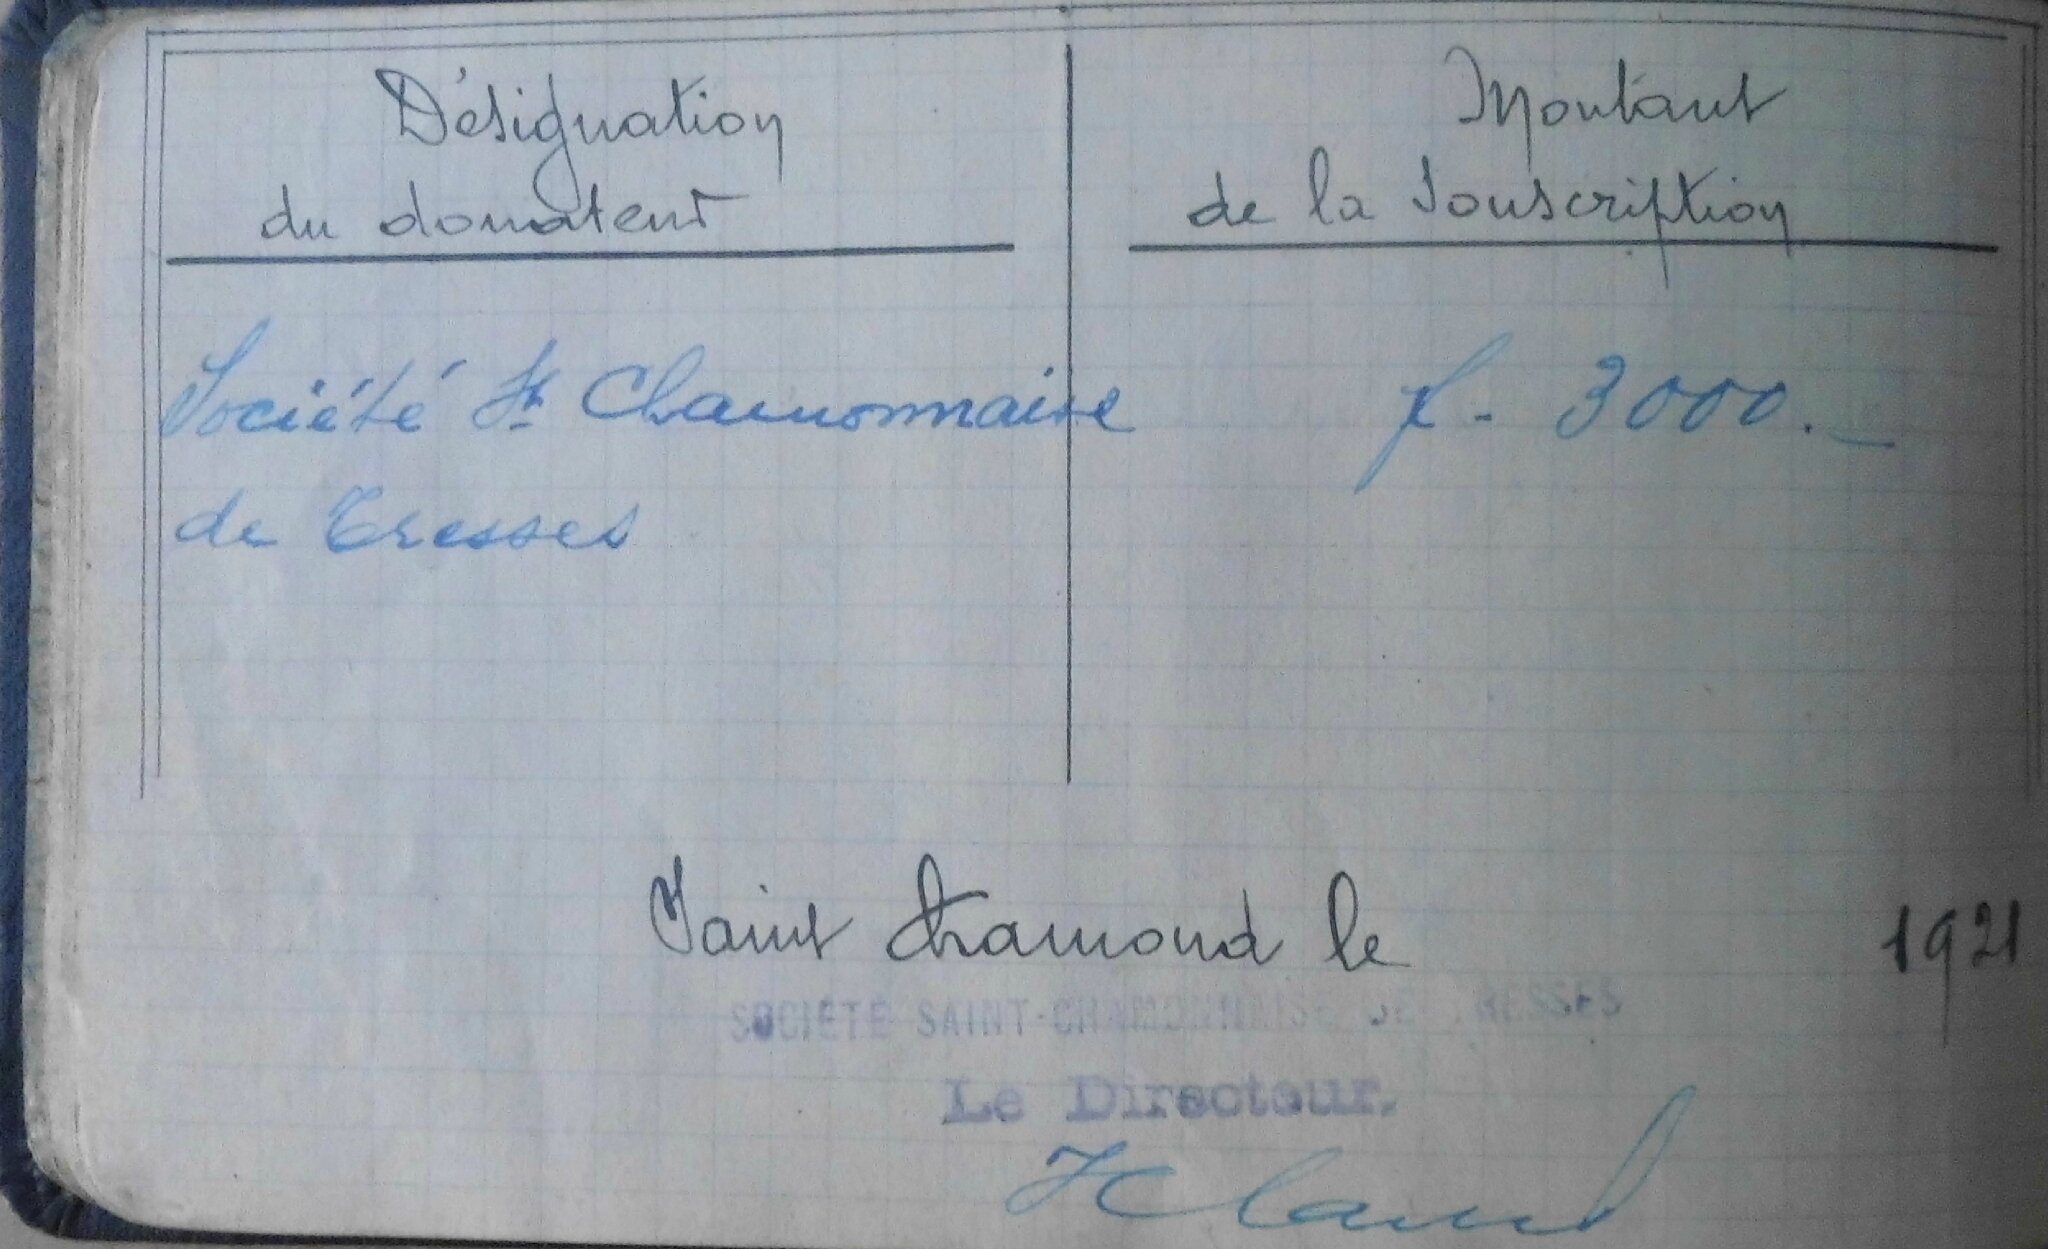 Désignation
du donateur
Montant
de la Souscription
Société St Chamonnaise
de Tresses
f - 3000.-
Saint Chamond le 1921
SOCIÉTÉ SAINT-CHAMONNAISE DE TRESSES
Le Directeur.